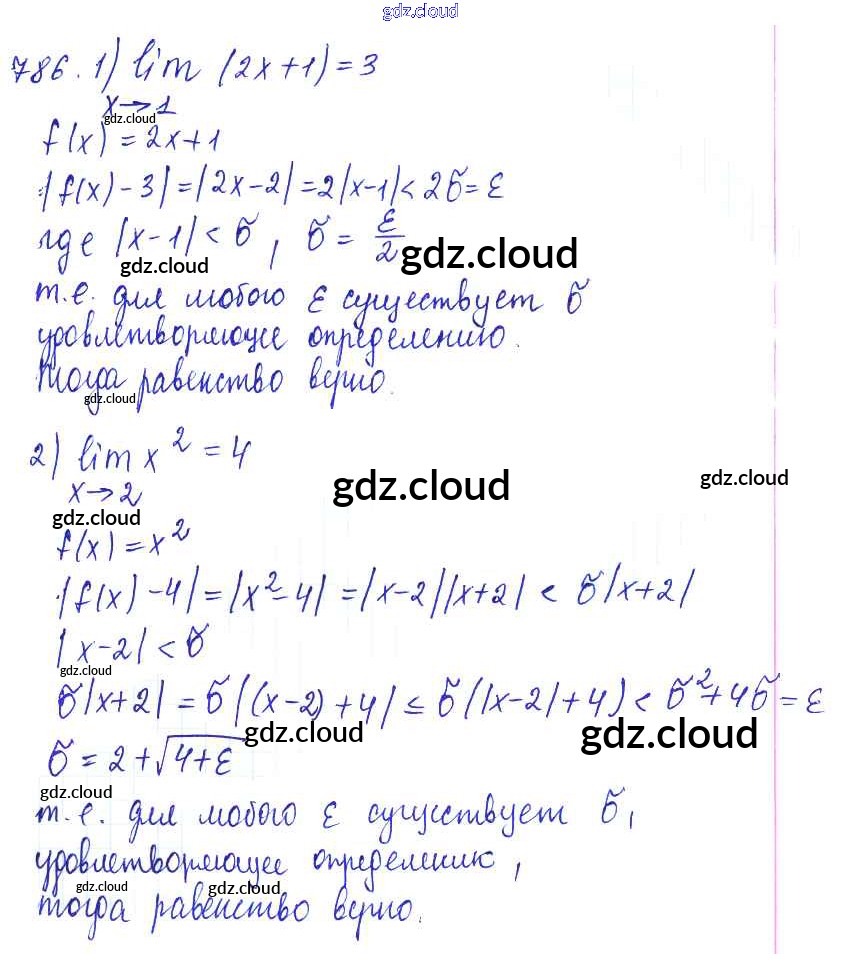 gdz.cloud
786. 1) lim (2x+1) = 3
x→1
gdz.cloud
f(x) = 2x+1
|f(x)-3| = |2x-2| = 2|x-1| < 2δ = ε
где |x-1| < δ, δ = ε/2
gdz.cloud gdz.cloud
т.е. для любого ε существует δ
удовлетворяющее определению.
Тогда равенство верно.
gdz.cloud
2) lim x² = 4
x→2
gdz.cloud gdz.cloud
gdz.cloud
f(x) = x²
|f(x)-4| = |x²-4| = |x-2||x+2| < δ|x+2|
|x-2| < δ
gdz.cloud
δ|x+2| = δ|(x-2)+4| ≤ δ(|x-2|+4) < δ²+4δ = ε
gdz.cloud gdz.cloud
δ = 2+√4+ε
gdz.cloud
т.е. для любого ε существует δ,
удовлетворяющее определению,
gdz.cloud gdz.cloud
тогда равенство верно.